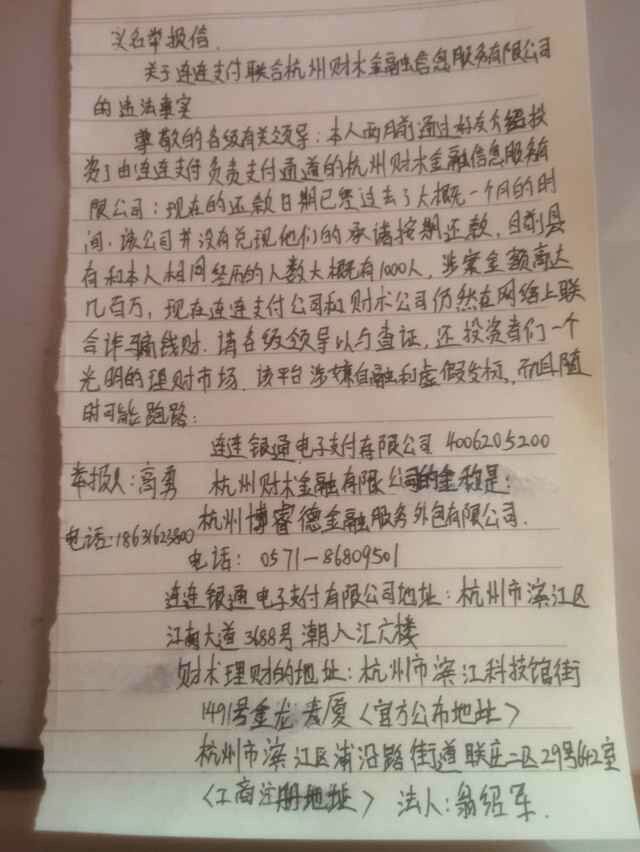 实名举报信
关于连连支付联合杭州财术金融信息服务有限公司
的违法事实
尊敬的各级有关领导：本人两月前通过好友介绍投
资了由连连支付负责支付通道的杭州财术金融信息服务有
限公司：现在的还款日期已经过去了大概一个月的时
间，该公司并没有兑现他们的承诺按期还款，目前具
有和本人相同经历的人数大概有1000人，涉案金额高达
几百万，现在连连支付公司和财术公司仍然在网络上联
合诈骗钱财．请各级领导以与查证，还投资者们一个
光明的理财市场．该平台涉嫌自融和虚假发标，而且随
时可能跑路：
连连银通电子支付有限公司 4006205200
举报人：高勇 杭州财术金融有限公司的全称是：
杭州博睿德金融服务外包有限公司．
电话：18631623800
电话：0571－86809501
连连银通电子支付有限公司地址：杭州市滨江区
江南大道3688号潮人汇六楼
财术理财的地址：杭州市滨江科技馆街
1491号金龙大厦〈官方公布地址〉
杭州市滨江区浦沿路街道联庄二区29号642室
〈工商注册地址〉 法人：翁绍军．